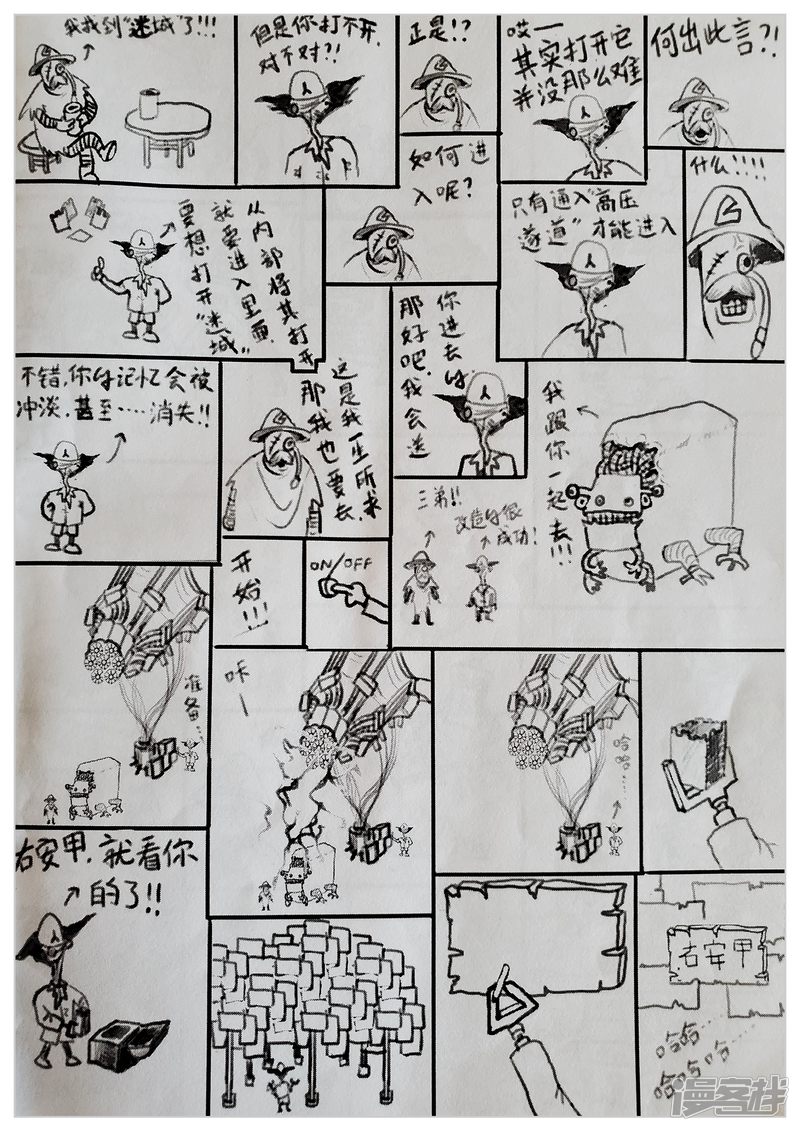 我找到"迷城"了!!!
但是你打不开,
对不对?!
正是!?
哎一
其实打开它
并没那么难
何出此言?!
要想打开"迷城"
就要进入里面,
从内部将其打开
如何进
入呢?
只有通入"高压
遂道"才能进入
什么!!!!
不错,你的记忆会被
冲淡,甚至……消失!!
这是我一生所求
那我也要去.
那好吧,我会送
你进去的
我跟你一起去!!!
三弟!!
改造的很
成功!
开始!!!
ON/OFF
准备…
咔一
哈哈…
右安甲,就看你
的了!!
右安甲
哈哈……
哈哈哈……
漫客栈